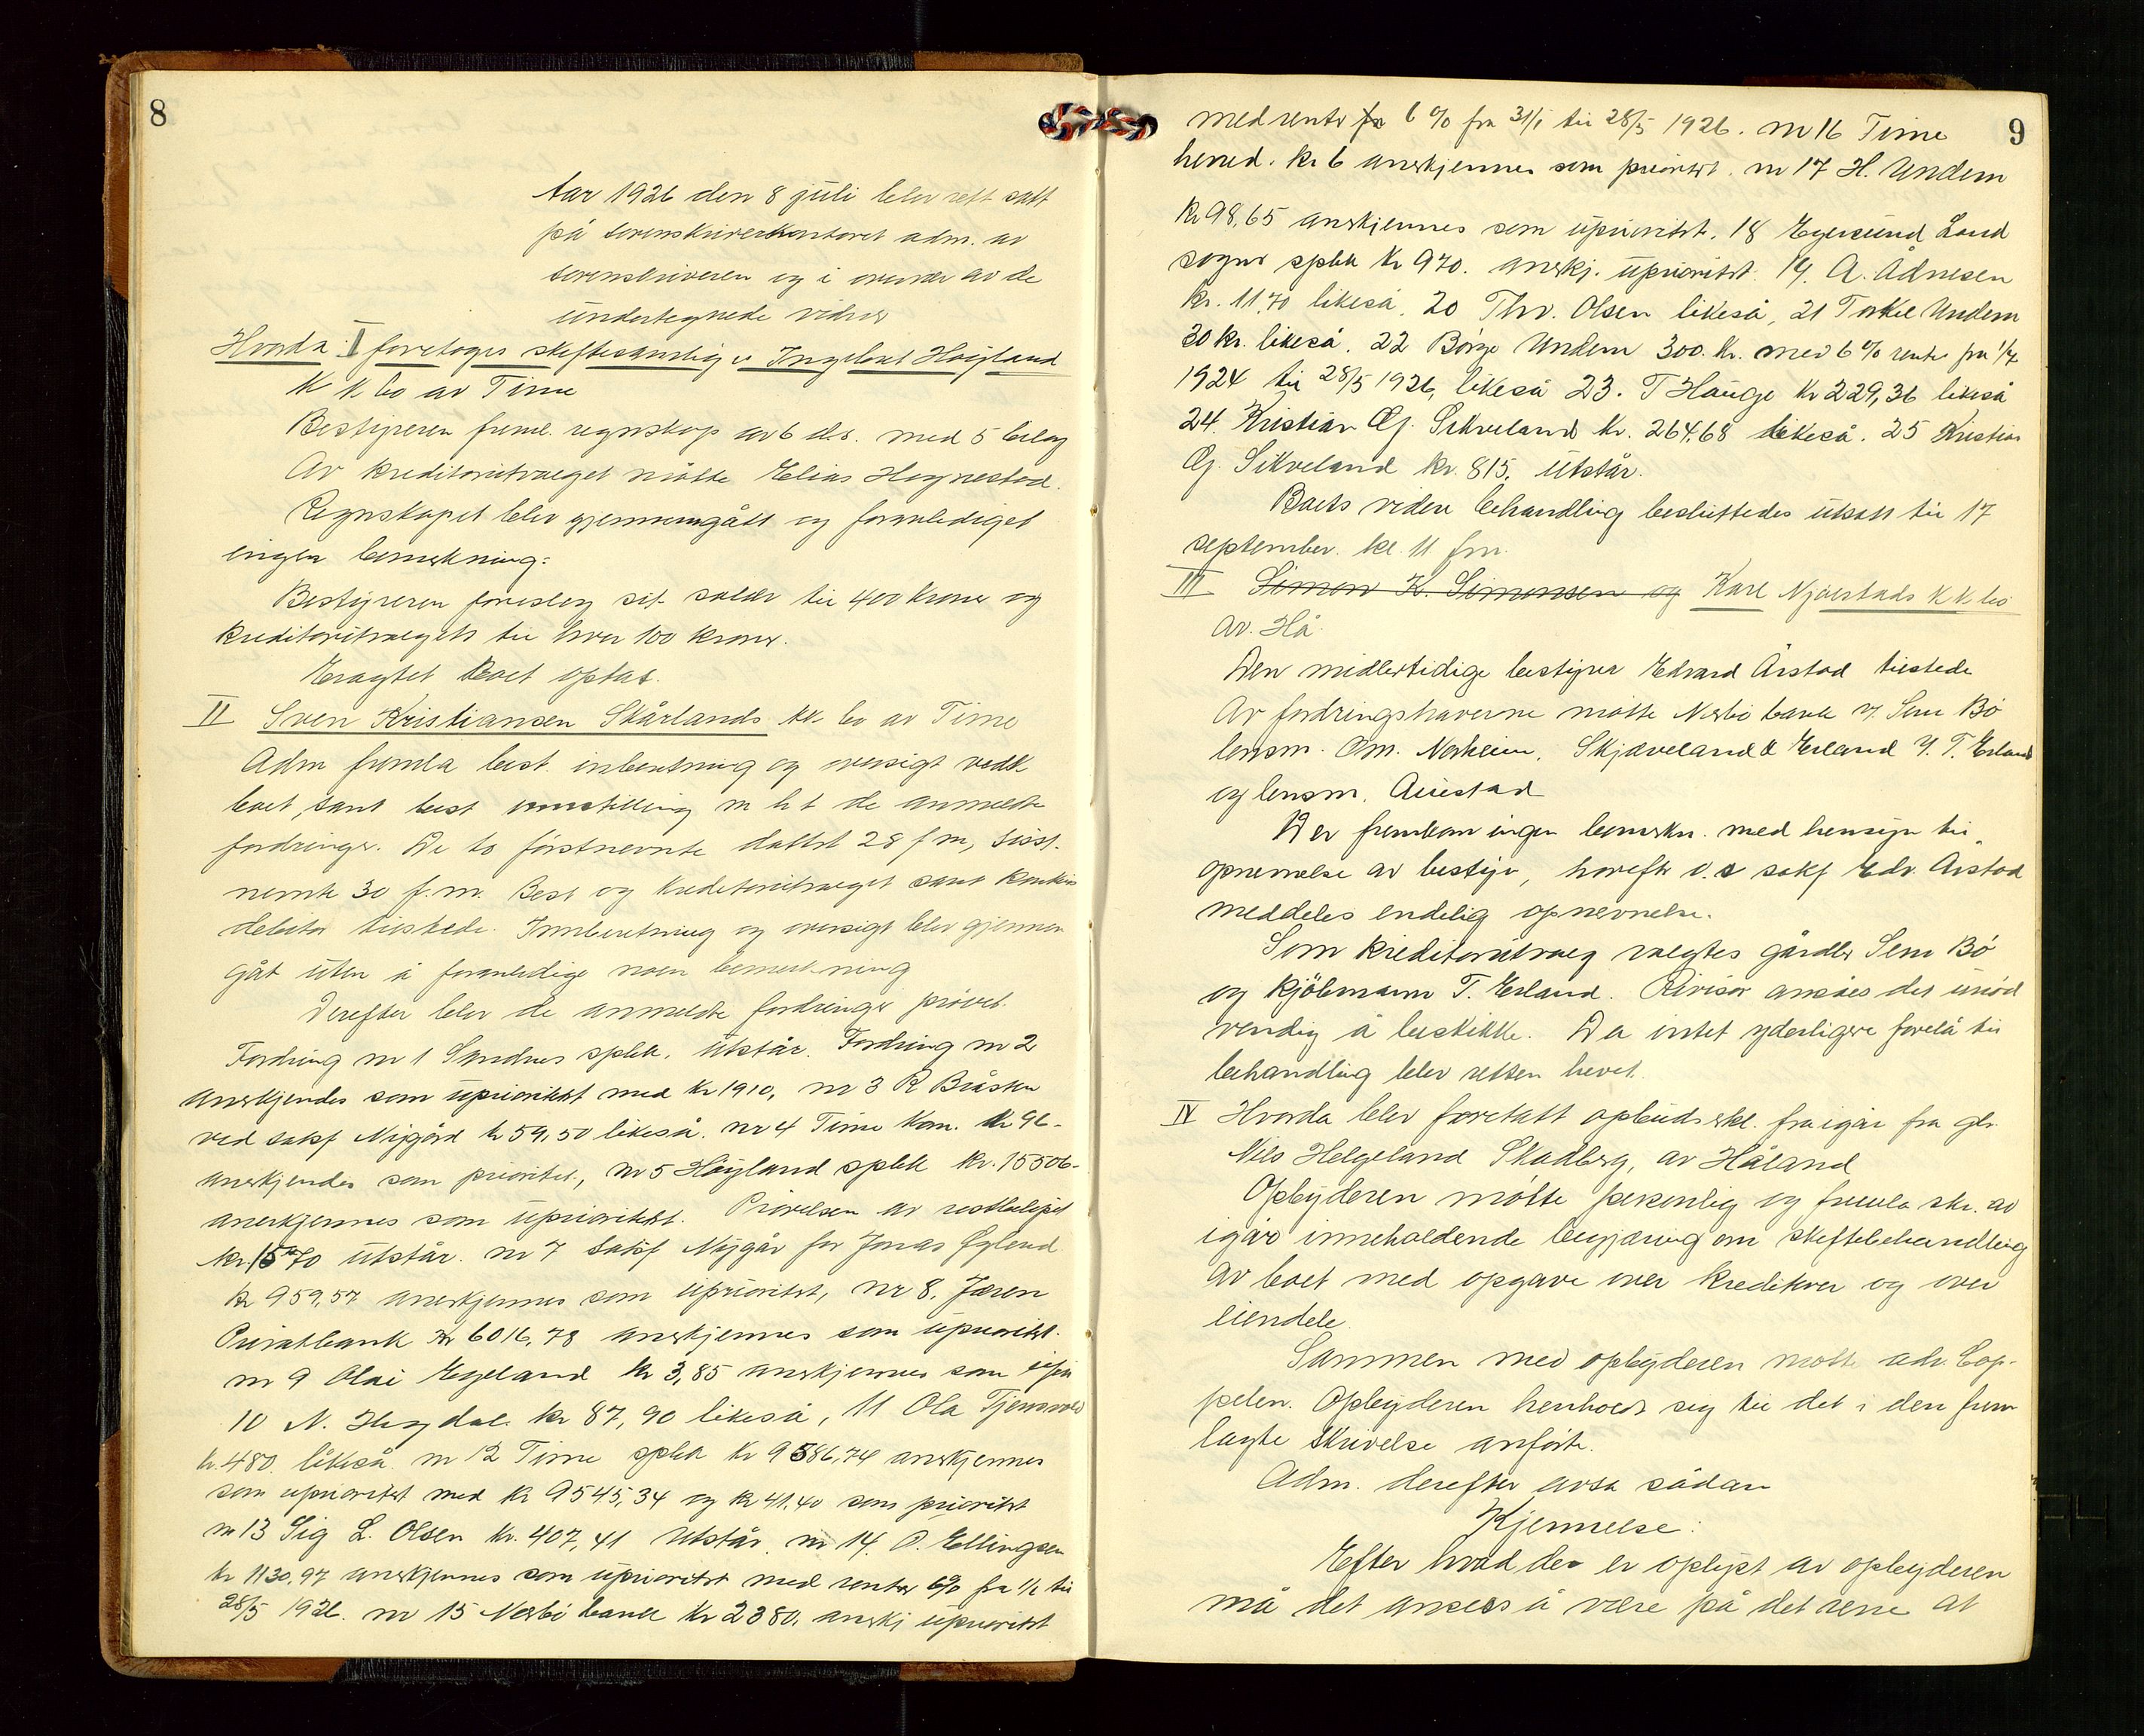 8
Aar 1926 den 8 juli blev rett satt
på sorenskriverkontoret adm. av
sorenskriveren og i overvær av de
undertegnede vidner
Hvorda: I foretoges skiftesamling i Ingebret Høiland
k k bo av Time
Bestyreren freml. regnskap av 6 ds. med 5 bilag
Av kreditorutvalget møtte Elias Hognestad.
Regnskapet blev gjennemgått og foranlediget
ingen bemerkning:
Bestyreren foreslog sit salær til 400 kroner og
kreditorutvalgets til hver 100 kroner.
Eragtet Boet optas.
II Sven Kristiansen Skårlands kk. bo av Time
Adm fremla best. inberetning og oversigt vedk
boet, samt best innstilling m h t de anmeldte
fordringer. De to førstnevnte datert 28 f m, sisst-
nevnte 30 f.m. Best og kreditorutvalget samt konkurs
debitor tilstede. Innberetning og oversigt blev gjennem
gåt uten å foranledige noen bemerkning
Derefter blev de anmeldte fordringer prøvet.
Fordring nr 1 Sandnes spbk. utstår. Fordring nr 2
anerkjendes som uprioritert med kr 1910, nr 3 R Bråsten
ved sakf Nygård kr 59,50 likeså. nr 4 Time kom. kr 96-
anerkjendes som prioritet., nr 5 Höyland spbk kr. 15506-
anerkjennes som uprioritert. Prøvelsen av restbeløpet
kr. 1570 utstår. nr 7 sakf Nygår for Jonas Øglend
kr 959,57 anerkjennes som uprioritert, nr 8. Jæren
Privatbank kr 6016,78 anerkjennes som uprioritert.
nr 9 Olai Egeland kr 3,85 anerkjennes som upri
10 N. Haugdal kr 87,90 likeså, 11 Ola Tjensvold
kr. 480. likeså. nr 12 Time spbk kr 9586,74 anerkjennes
som uprioritert med kr 9545,34 og kr 41,40 som prioritert
nr 13 Sig L. Olsen kr. 407,41 utstår. nr 14. O. Ellingsen
kr 1130,97 anerkjennes som uprioritert med renter 6% fra 1/1 til
28/5 1926. nr 15 Nærbø bank kr 2380, anerkj uprioritert
9
med renter fra 6 % fra 31/1 til 28/5 1926. nr 16 Time
herred. kr 6 anerkjennes som prioritert. nr 17 H. Undem
kr 98,65 anerkjennes som uprioritert. 18 Egersund Land
sogns spbk kr 970. anerkj. uprioritert. 19. A. Ådnesen
kr. 11,70 likeså. 20 Thv. Olsen likeså, 21 Torkel Undem
30 kr. likeså. 22 Børge Undem 300. kr. med 6% renter fra 1/7
1924 til 28/5 1926, likeså 23. T Hauge kr 229,36 likeså
24. Kristian Gj. Sikveland kr. 264,68 likeså. 25 Kristian
Gj. Sikveland kr. 815. utstår.
Boets videre behandling besluttedes utsatt til 17
september. kl. 11 fm.
III Simon K. Simonsen og Karl Njølstads k k. bo
av. Hå.
Den midlertidige bestyrer Edvard Årstad tilstede
Av fordringshaverne møtte Nærbø bank v. Sem Bø
lensm. Om. Norheim. Skjæveland & Erland v. T. Erland
og lensm. Auestad
Der fremkom ingen bemerkn. med hensyn til
opnevnelse av bestyrer, hvorefter o.r sakf Edv. Årstad
meddeles endelig opnevnelse.
Som kreditorutvalg valgtes gårdbr Sem Bø
og kjøbmann T. Erland. Revisor ansåes det unød
vendig å beskikke. Da intet yderligere forelå til
behandling blev retten hevet.
IV Hvorda blev foretatt opbudserkl. fra igår fra gbr.
Nils Helgeland Skadberg, av Håland
Opbyderen møtte personlig og fremla skr. av
igår inneholdende begjæring om skiftebehandling
av boet med opgave over kreditorer og over
eiendele.
Sammen med opbyderen møtte adv. Cop-
pelen. Opbyderen henholdt seg til det i den frem
lagte skrivelse anførte.
Adm. derefter avsa sådan
Kjennelse:
Efter hvad der er oplyst av opbyderen
må det ansees å være på det rene at